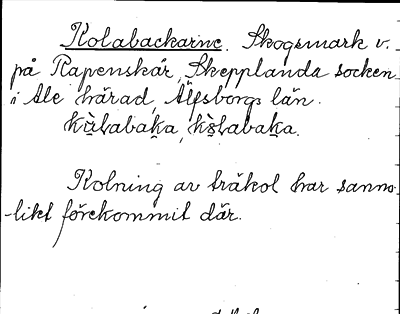 Kolabackarne. Skogsmark v.
på Rapenskär, Skepplanda socken
i Ale härad, Älfsborgs län.
kù̀labaka, kò̀labaka.
Kolning av träkol har sanno-
-likt förekommit där.